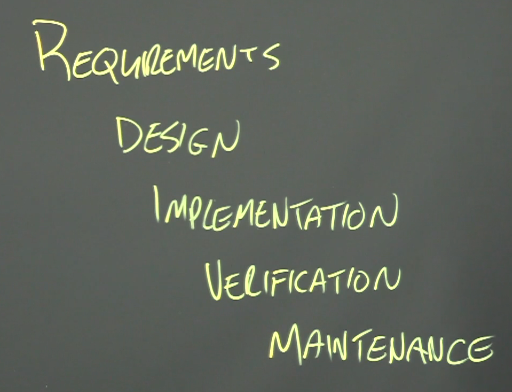 REQUIREMENTS
DESIGN
IMPLEMENTATION
VERIFICATION
MAINTENANCE